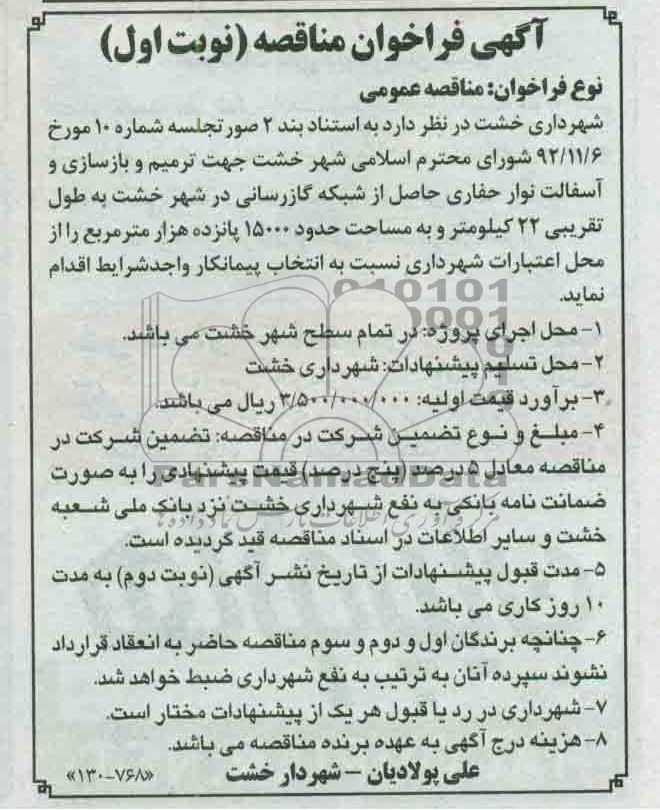 آگهی فراخوان مناقصه (نوبت اول)
نوع فراخوان: مناقصه عمومی
شهرداری خشت در نظر دارد به استناد بند ۲ صورتجلسه شماره ۱۰ مورخ
۹۲/۱۱/۶ شورای محترم اسلامی شهر خشت جهت ترمیم و بازسازی و
آسفالت نوار حفاری حاصل از شبکه گازرسانی در شهر خشت به طول
تقریبی ۲۲ کیلومتر و به مساحت حدود ۱۵۰۰۰ پانزده هزار مترمربع را از
محل اعتبارات شهرداری نسبت به انتخاب پیمانکار واجدشرایط اقدام
نماید.
۱- محل اجرای پروژه: در تمام سطح شهر خشت می باشد.
۲- محل تسلیم پیشنهادات: شهرداری خشت
۳- برآورد قیمت اولیه: ۳/۵۰۰/۰۰۰/۰۰۰ ریال می باشد.
۴- مبلغ و نوع تضمین شرکت در مناقصه: تضمین شرکت در
مناقصه معادل ۵ درصد (پنج درصد) قیمت پیشنهادی را به صورت
ParsNamadData
ضمانت نامه بانکی به نفع شهرداری خشت نزد بانک ملی شعبه
خشت و سایر اطلاعات در اسناد مناقصه قید گردیده است.
۵- مدت قبول پیشنهادات از تاریخ نشر آگهی (نوبت دوم) به مدت
۱۰ روز کاری می باشد.
۶- چنانچه برندگان اول و دوم و سوم مناقصه حاضر به انعقاد قرارداد
نشوند سپرده آنان به ترتیب به نفع شهرداری ضبط خواهد شد.
۷- شهرداری در رد یا قبول هر یک از پیشنهادات مختار است.
۸- هزینه درج آگهی به عهده برنده مناقصه می باشد.
علی پولادیان – شهردار خشت
«۱۳۰-۷۶۸»